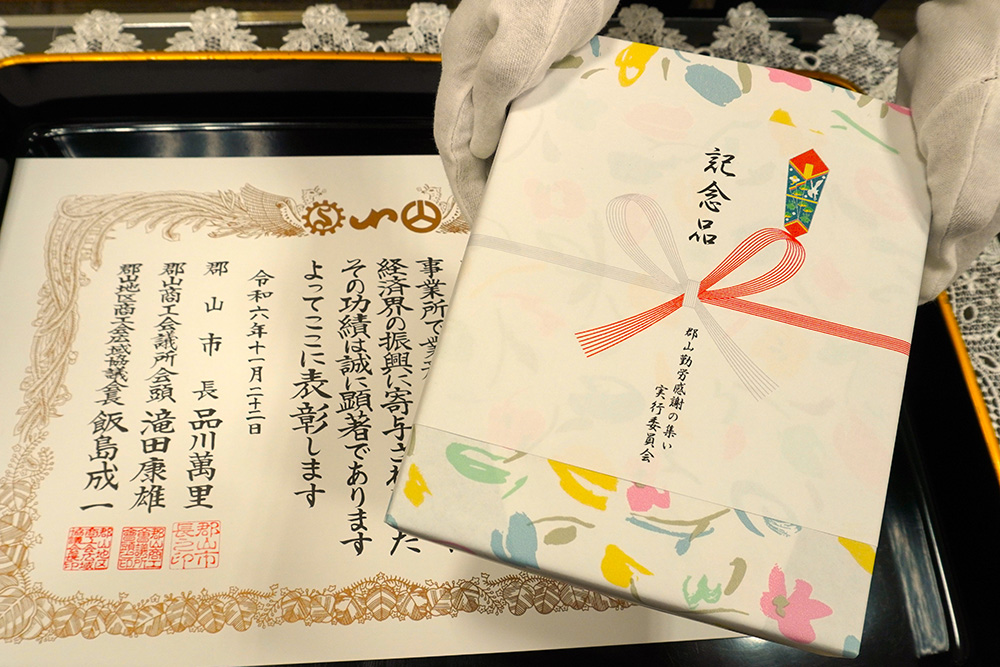 記念品
郡山勤労感謝の集い
実行委員会
事業所で業
経済界の振興に寄与され
た
その功績は誠に顕著であります
よってここに表彰します
令和六年十一月二十二日
郡山市長 品川萬里
郡山商工会議所会頭 滝田康雄
郡山地区商工会広域協議会会長 飯島成一
郡山市長之印